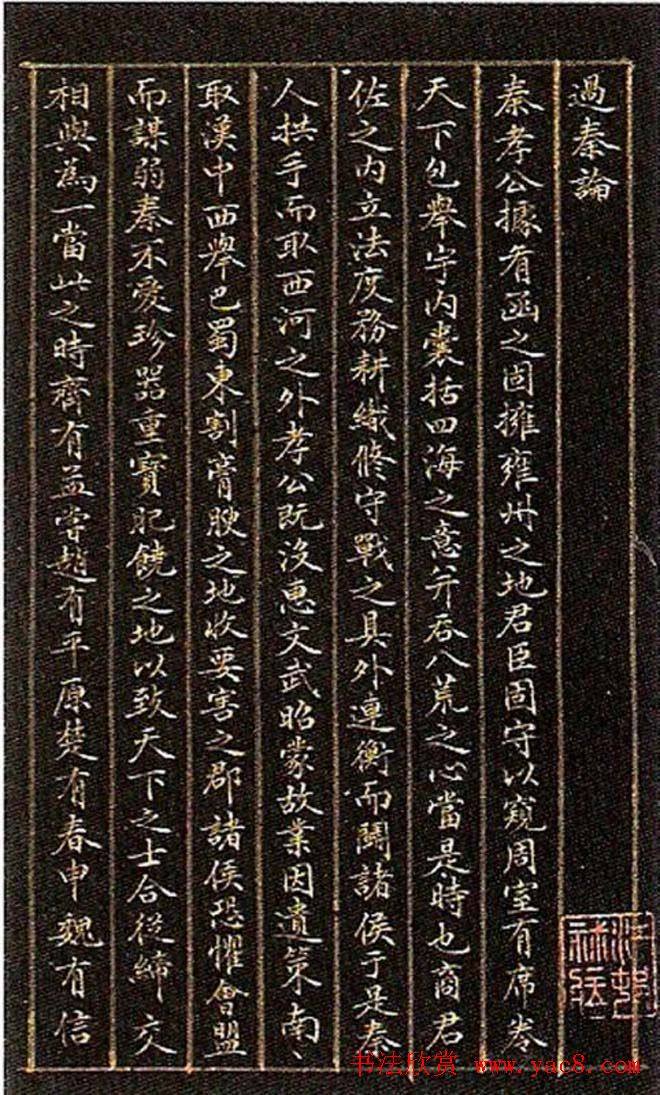 過秦論
秦孝公據肴函之固擁雍州之地君臣固守以窺周室有席卷
天下包舉宇內囊括四海之意并吞八荒之心當是時也商君
佐之內立法度務耕織修守戰之具外連衡而鬪諸侯于是秦
人拱手而取西河之外孝公既沒惠文武昭蒙故業因遺策南
取漢中西舉巴蜀東割膏腴之地收要害之郡諸侯恐懼會盟
而謀弱秦不愛珍器重寶肥饒之地以致天下之士合從締交
相與為一當此之時齊有孟嘗趙有平原楚有春申魏有信
书法欣赏 www.yac8.com